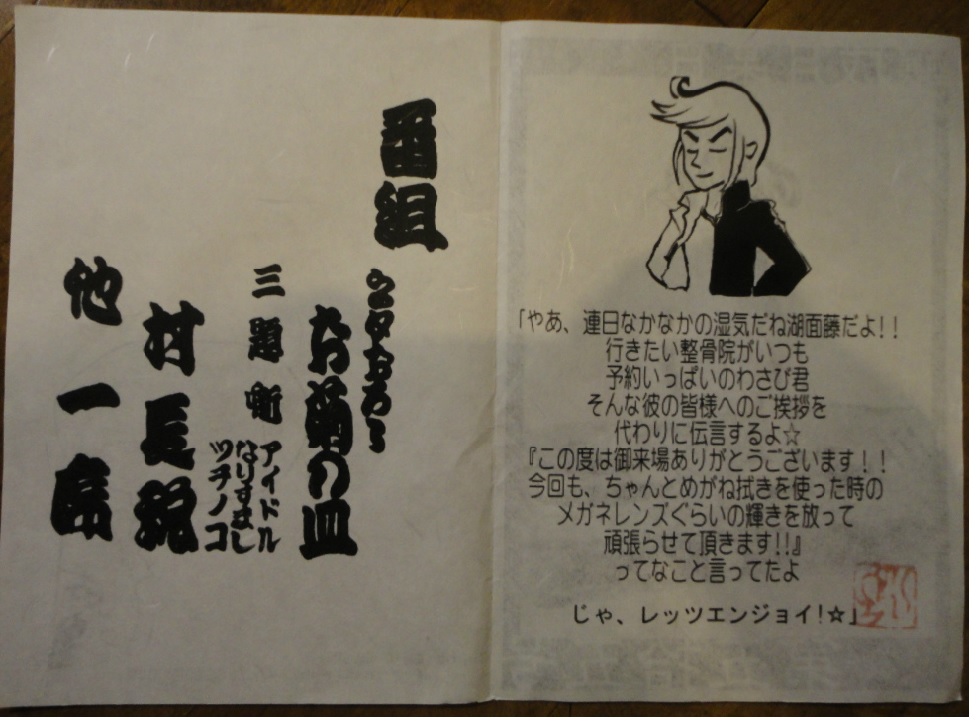 「やあ、連日なかなかの湿気だね湖面藤だよ!!
行きたい整骨院がいつも
予約いっぱいのわさび君
そんな彼の皆様へのご挨拶を
代わりに伝言するよ☆
『この度は御来場ありがとうございます!!
今回も、ちゃんとめがね拭きを使った時の
メガネレンズぐらいの輝きを放って
頑張らせて頂きます!!』
ってなこと言ってたよ
じゃ、レッツエンジョイ!☆」
番組
ネタおろし
お菊の皿
三題噺
アイドル
なりすまし
ツチノコ
村長
他一席